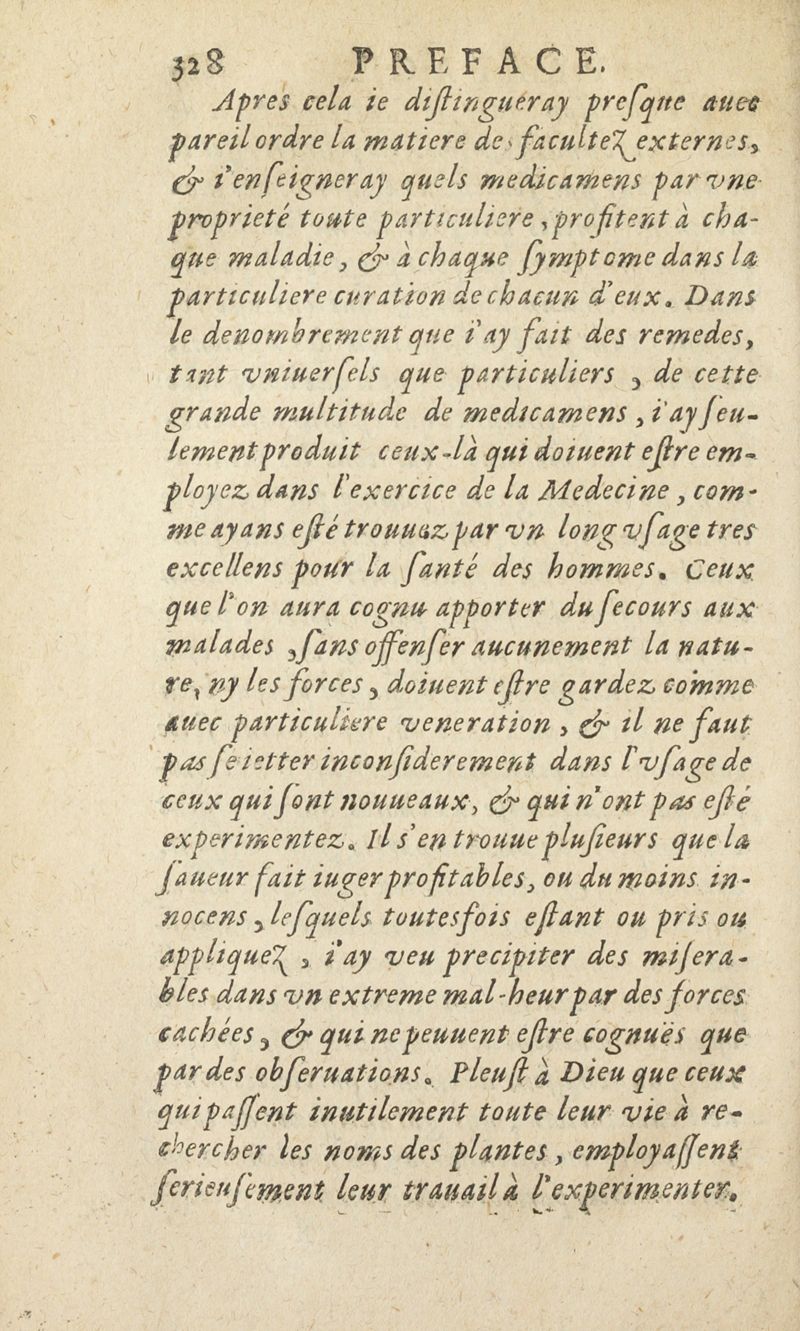 328 PREFACE.
Apres cela ie diſtingueray preſque auec
pareil ordre la matiere des facultez externes,
& i'enſeigneray quels medicamens par vne
proprieté toute particuliere, profitent à cha-
que maladie, & à chaque ſymptome dans la
particuliere curation de chacun d'eux. Dans
le denombrement que i'ay fait des remedes,
tant vniuerſels que particuliers, de cette
grande multitude de medicamens, i'ay ſeu-
lement produit ceux-là qui doiuent eſtre em-
ployez dans l'exercice de la Medecine, com-
me ayans eſté trouuez par vn long vſage tres
excellens pour la ſanté des hommes. Ceux
que l'on aura cognu apporter du ſecours aux
malades, ſans offenſer aucunement la natu-
re, ny les forces, doiuent eſtre gardez comme
auec particuliere veneration, & il ne faut
pas ſe ietter inconſiderement dans l'vſage de
ceux qui ſont nouueaux, & qui n'ont pas eſté
experimentez. Il s'en trouue pluſieurs que la
faueur fait iuger profitables, ou du moins in-
nocens, leſquels toutesfois eſtant ou pris ou
appliquez, i'ay veu precipiter des miſera-
bles dans vn extreme mal-heur par des forces
cachées, & qui ne peuuent eſtre cognuës que
par des obſeruations. Pleuſt à Dieu que ceux
qui paſſent inutilement toute leur vie à re-
chercher les noms des plantes, employaſſent
ſerieuſement leur trauail à l'experimenter.